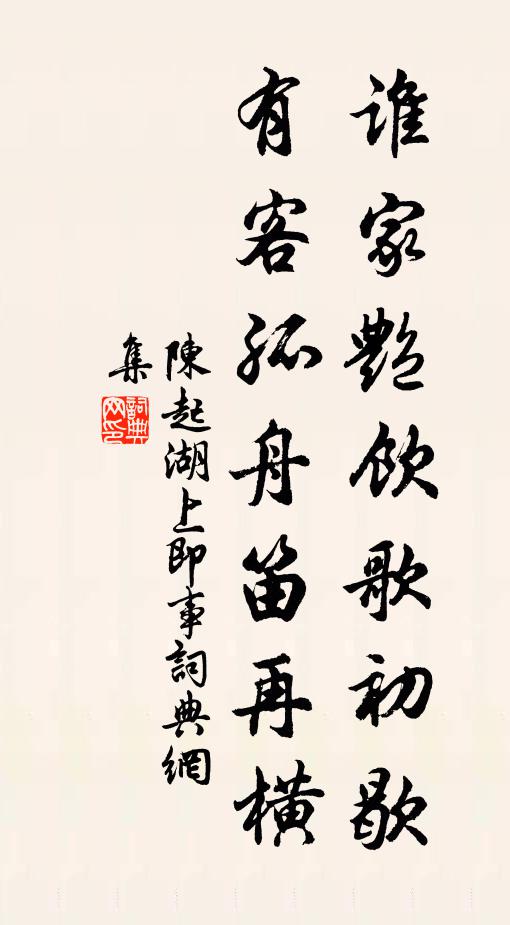 谁家艷飲歌初歇
有客孤舟笛再橫
陳起湖上即事詞典網
集
詞典网印